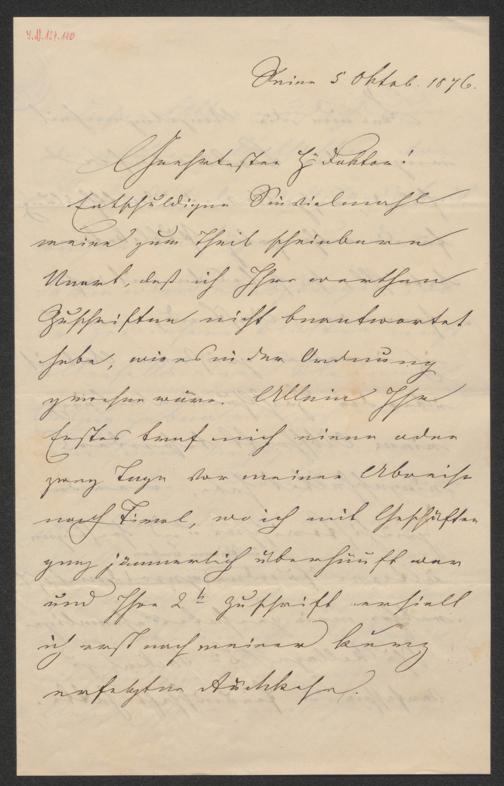 Y.N.127.110
5 Oktob. 1876.
Geehrtester H. Doktor!
Entschuldigen Sie vielmahl
meine zum Theil scheinbare
Unart, daß ich Ihre werthen
Zuschriften nicht beantwortet
habe, wie es in der Ordnung
gewesen wäre. Allein Ihr
Erstes traf mich einen oder
zwey Tage vor meiner Abreise
nach Tirol, wo ich mit Geschäften
ganz jämmerlich überhäuft war
und Ihre 2te Zuschrift erhielt
ich erst nach meiner kurz
erfolgten Rückkehr.